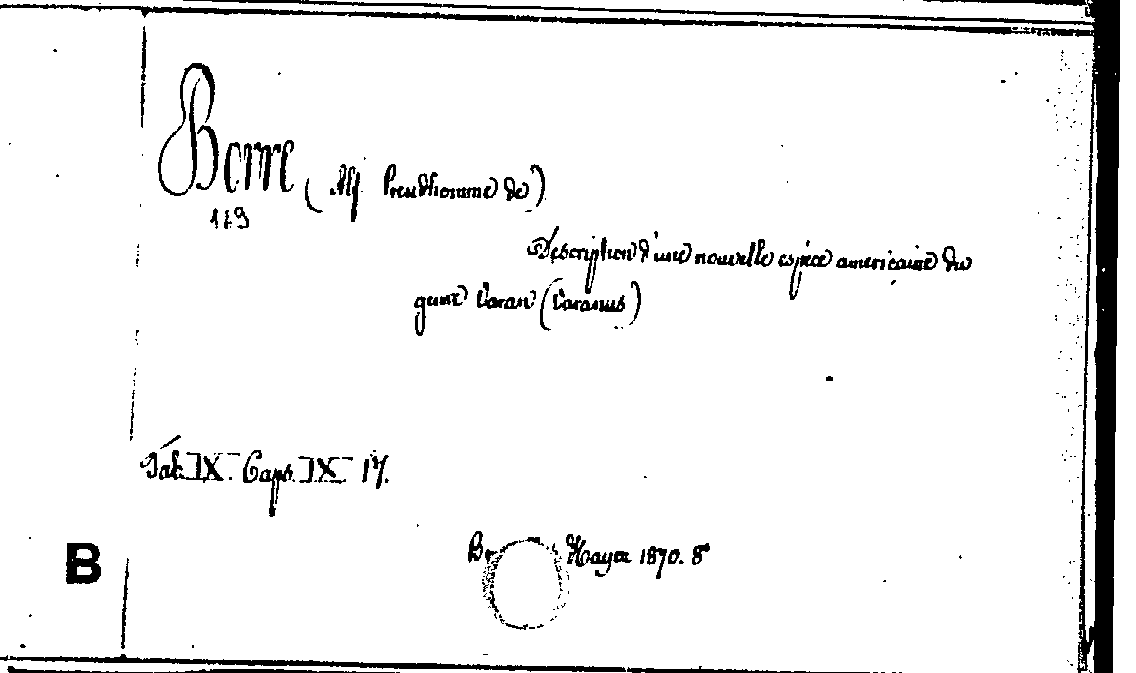 Borre (Alf Preudhomme de)
Description d'une nouvelle espèce americaine du
genre Varan (Varanus)
Tab. IX. Caps. IX 17.
Hayez 1870. 8°
B